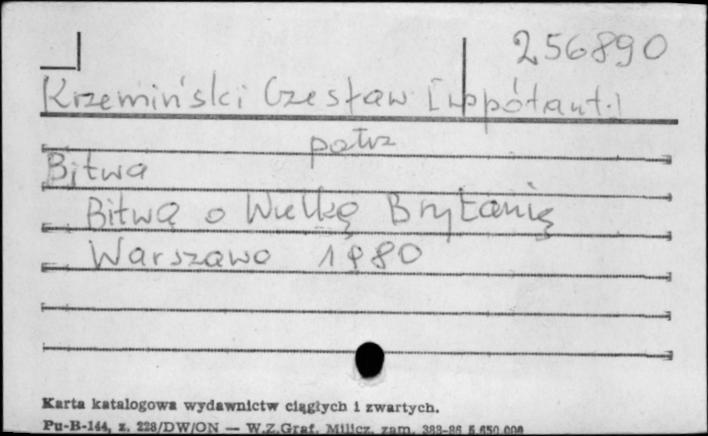 256890
Krzemiński Czesław [współaut.]
patrz
Bitwa
Bitwa o Wielką Brytanię
Warszawa 1980
Karta katalogowa wydawnictw ciągłych i zwartych.
Pu-B-144, z. 228/DW/ON — W.Z.Graf. Milicz, zam. 388-86 5 650 000